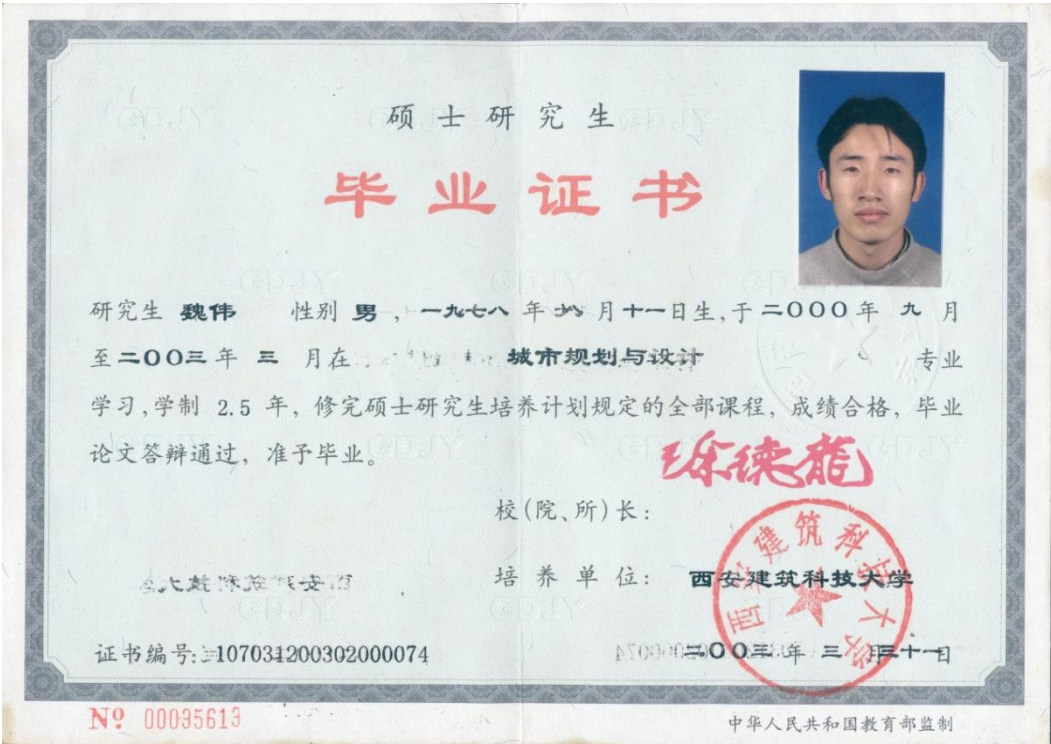 硕士研究生
毕业证书
研究生 魏伟 性别 男，一九七八 年 月十一日生,于二〇〇〇年 九 月
至二〇〇三年 三 月在 城市规划与设计 专业
学习,学制 2.5 年，修完硕士研究生培养计划规定的全部课程，成绩合格，毕业
论文答辩通过，准予毕业。
徐德龙
校(院、所)长：
培养单位：西安建筑科技大学
西安建筑科技大学
证书编号:107034200302000074
二〇〇三年 三 月三十一日
Nº 00035613
中华人民共和国教育部监制